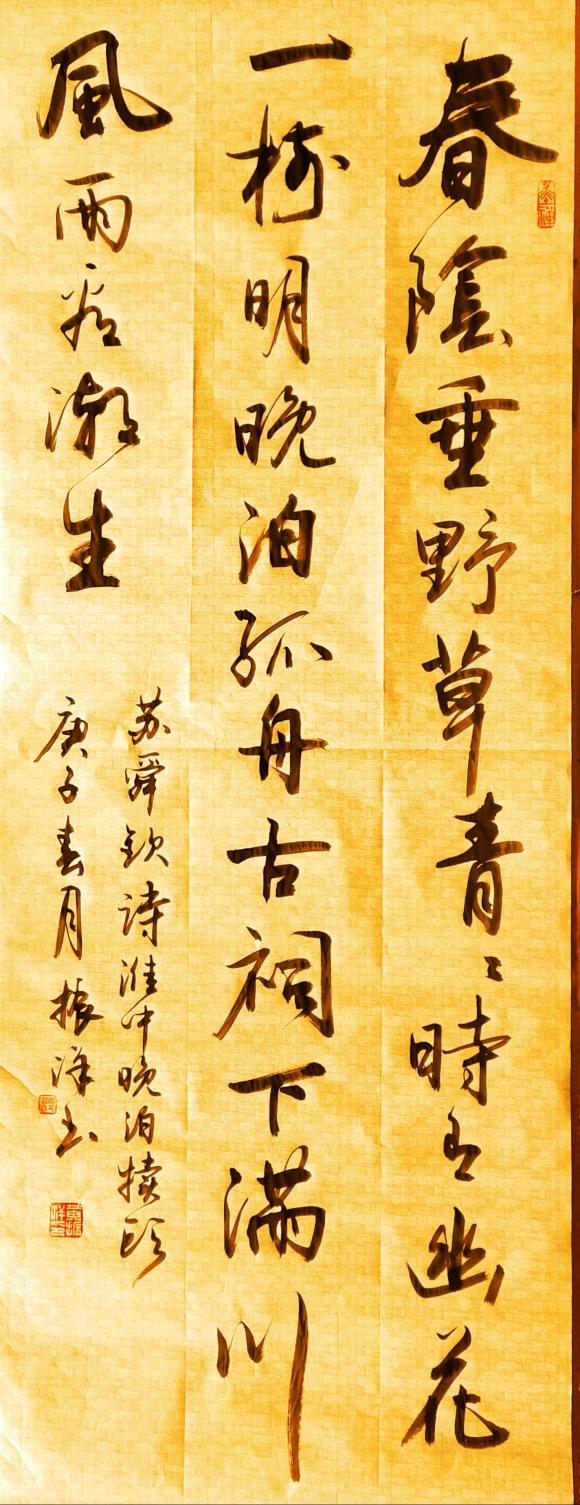 春陰垂野草青〻時有幽花
一樹明晚泊孤舟古祠下滿川
風雨看潮生
苏舜钦詩淮中晚泊犊头
庚子春月振洋书